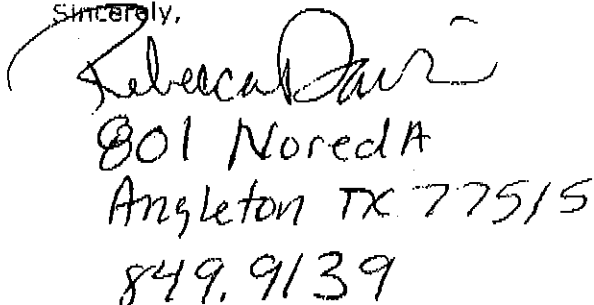 Sincerely,
Rebecca Davis
801 Noreda
Angleton TX 77515
849.9139